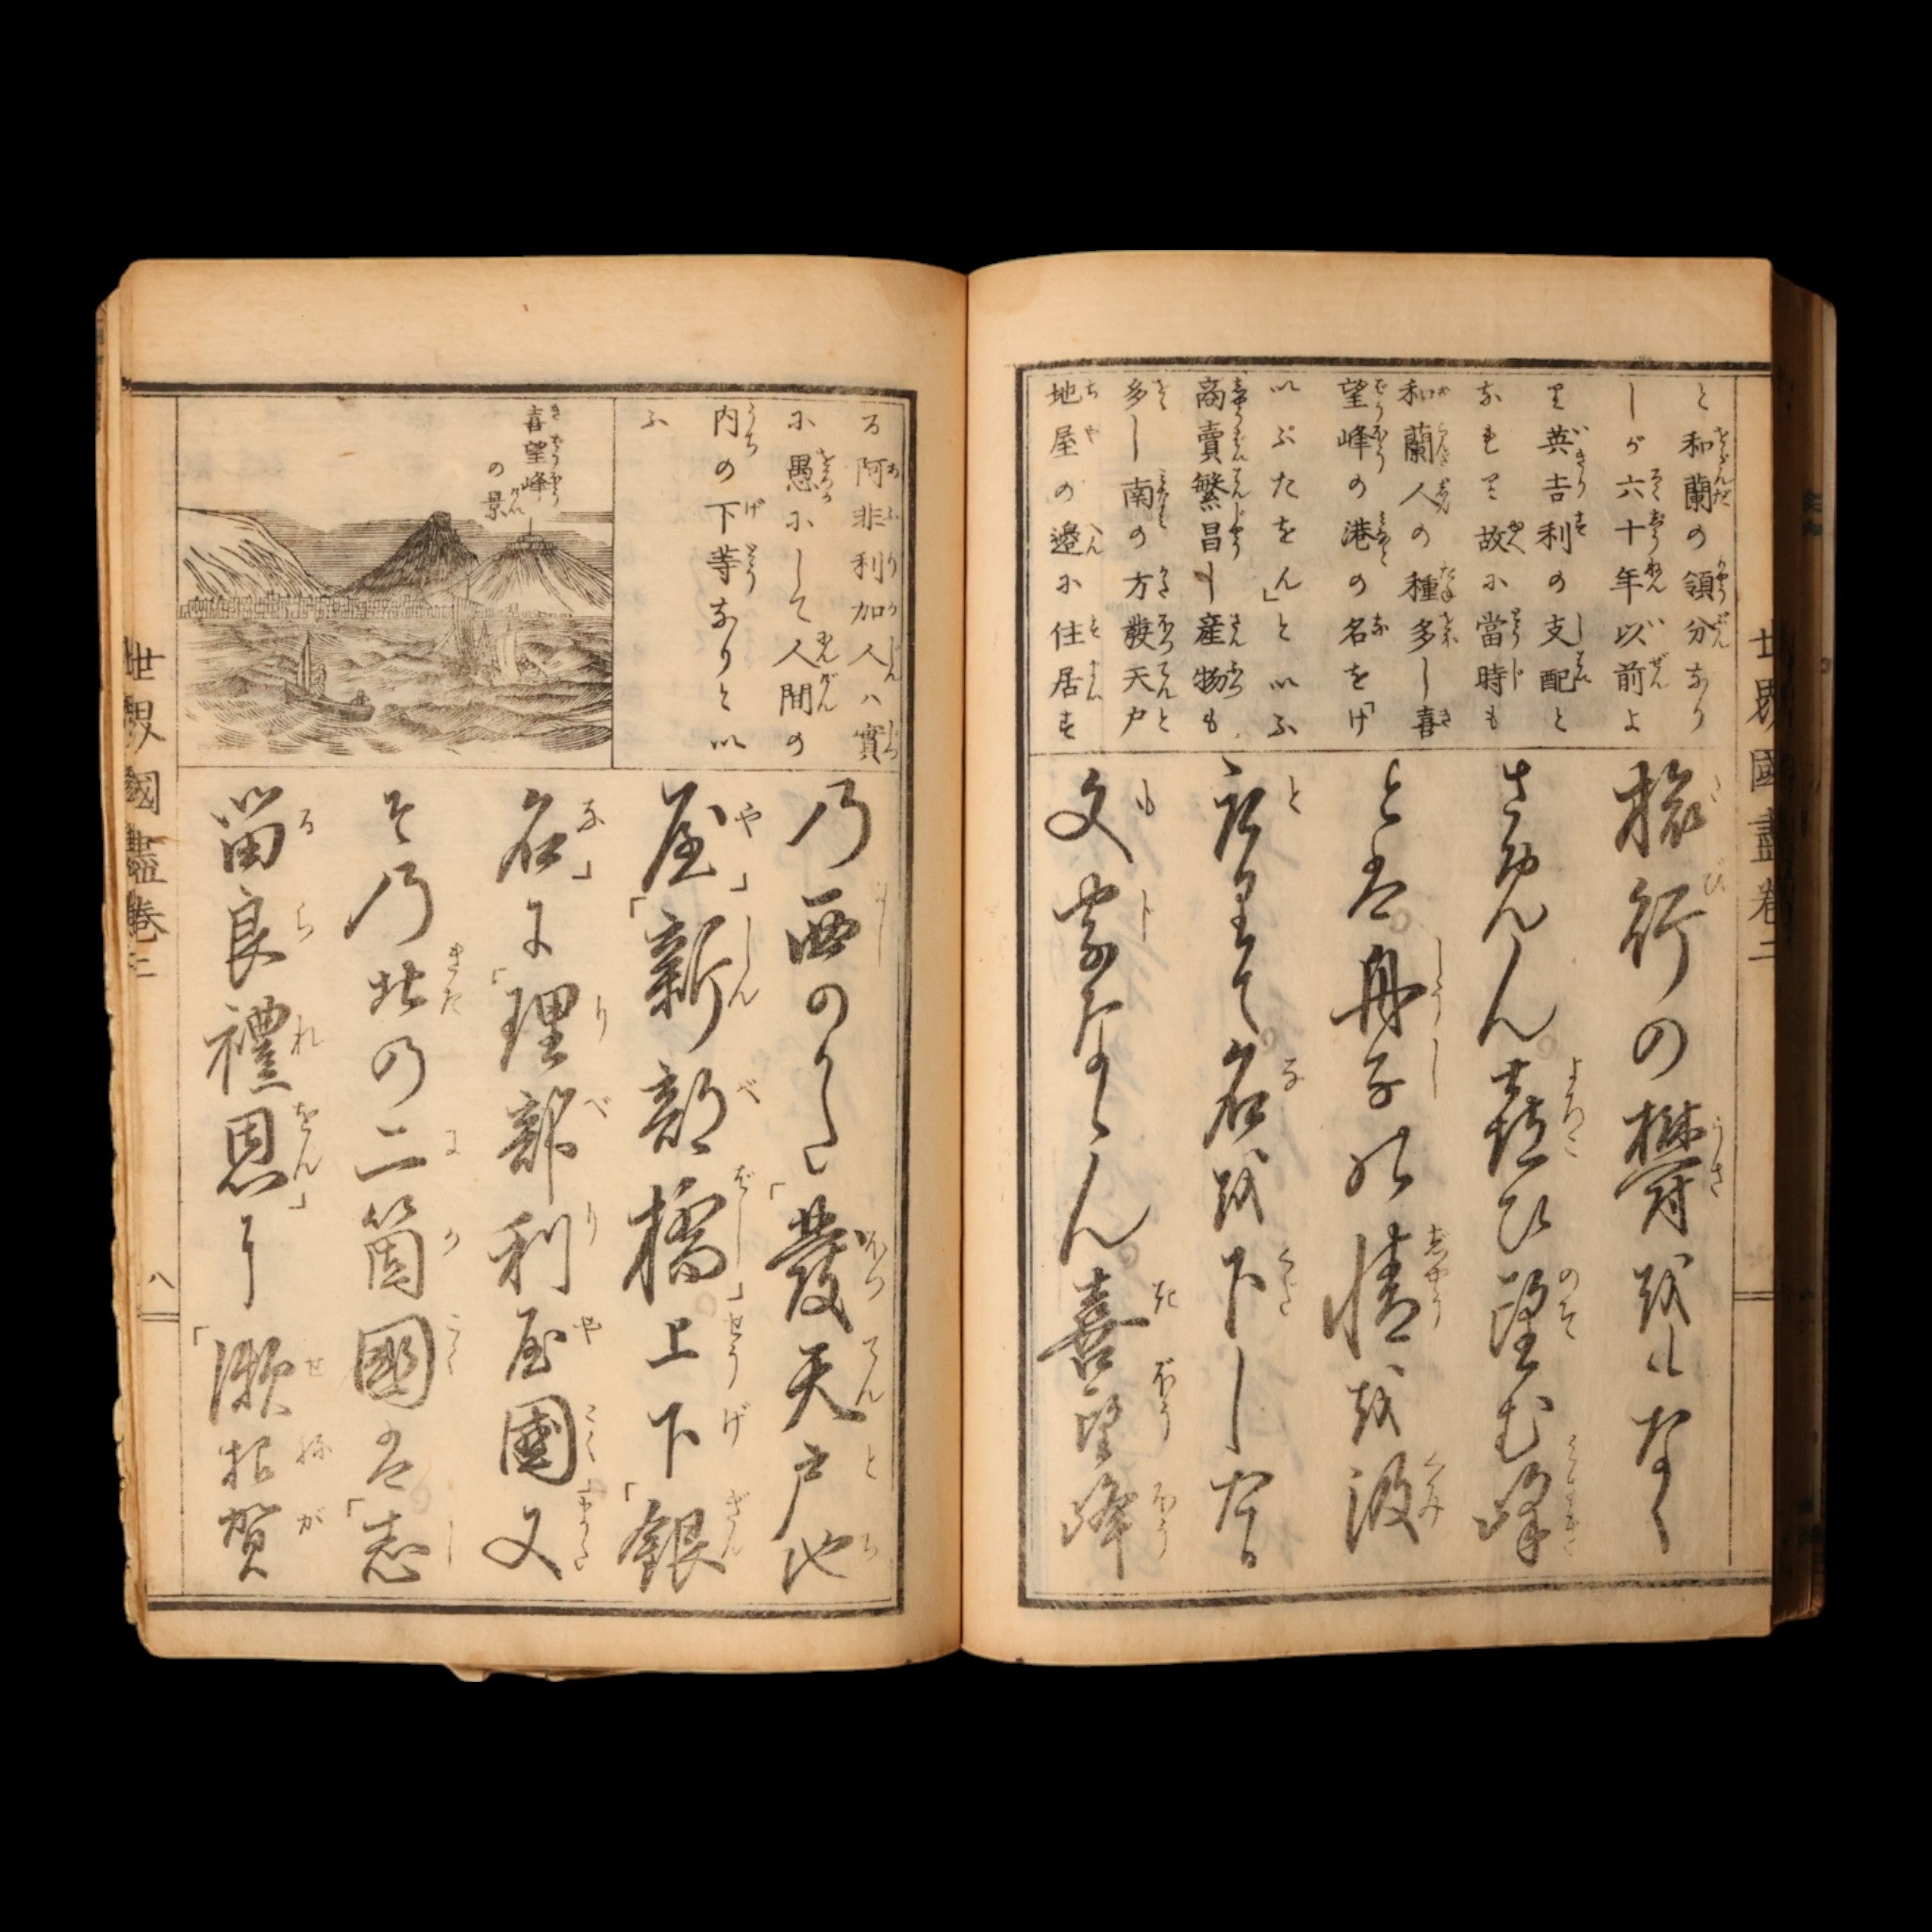 と和蘭の領分なり
しが六十年以前よ
り英吉利の支配と
なれり故に當時も
和蘭人の種多し喜
望峰の港の名を「け
いぷたをん」といふ
商賣繁昌し産物も
多し南の方發天戸
地屋の邉に住居す
旅行の欝越しなく
さめん喜ひ望む峰
と舟子の情越汲
とりて名越下しな
文字ならん喜望峰
る阿非利加人ハ實
に愚にして人間の
内の下等なりとい
ふ
喜望峰
の景
乃西のかた「發天戸地
屋」「新部橋」上下「銀
名」に「理部利屋國又
そ乃北の二箇國は「志
留良禮恩」に「瀬根賀
世界國盡卷二
世界國盡卷二
八